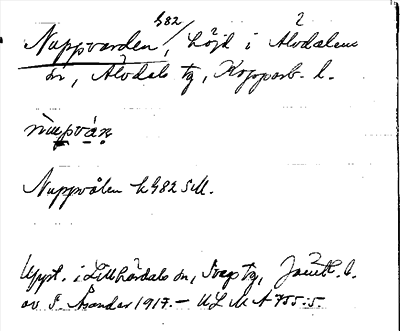 582 2
Nuppvarden, höjd i Älvdalens
sn, Älvdals tg, Kopparb. l.
nùpvά̠ṇ
Nuppvålen h 582 SM.
Uppt. i Lillhärdals sn, Svegs tg, Jämtl. l.
av S. Åsander 1917. – ULMA 755:5